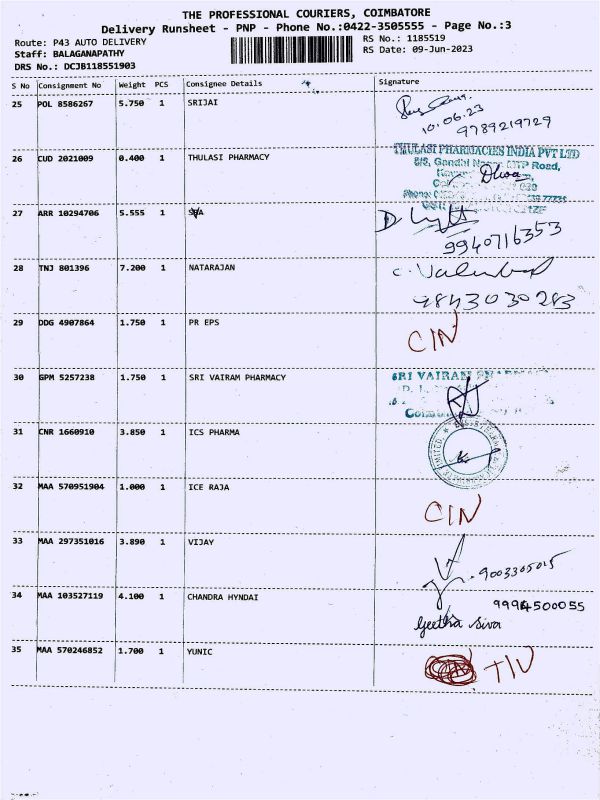 THE PROFESSIONAL COURIERS, COIMBATORE
Delivery Runsheet - PNP - Phone No.:0422-3505555 - Page No.:3
Route: P43 AUTO DELIVERY
RS No.: 1185519
Staff: BALAGANAPATHY
RS Date: 09-Jun-2023
DRS No.: DCJB118551903
S No Consignment No Weight PCS Consignee Details Signature
25 POL 8586267 5.750 1 SRIJAI
10.06.23
9789219729
26 CUD 2021009 0.400 1 THULASI PHARMACY
THULASI PHARMACIES INDIA PVT LTD
Gandhi Road,
27 ARR 10294706 5.555 1
9940716353
28 TNJ 801396 7.200 1 NATARAJAN
9843030283
29 DDG 4907864 1.750 1 PR EPS
CIN
30 GPM 5257238 1.750 1 SRI VAIRAM PHARMACY
SRI VAIRAM
31 CNR 1660910 3.850 1 ICS PHARMA
32 MAA 570951904 1.000 1 ICE RAJA
CIN
33 MAA 297351016 3.890 1 VIJAY
9003305015
34 MAA 103527119 4.100 1 CHANDRA HYNDAI
9994500055
Geetha Siva
35 MAA 570246852 1.700 1 YUNIC
TIN